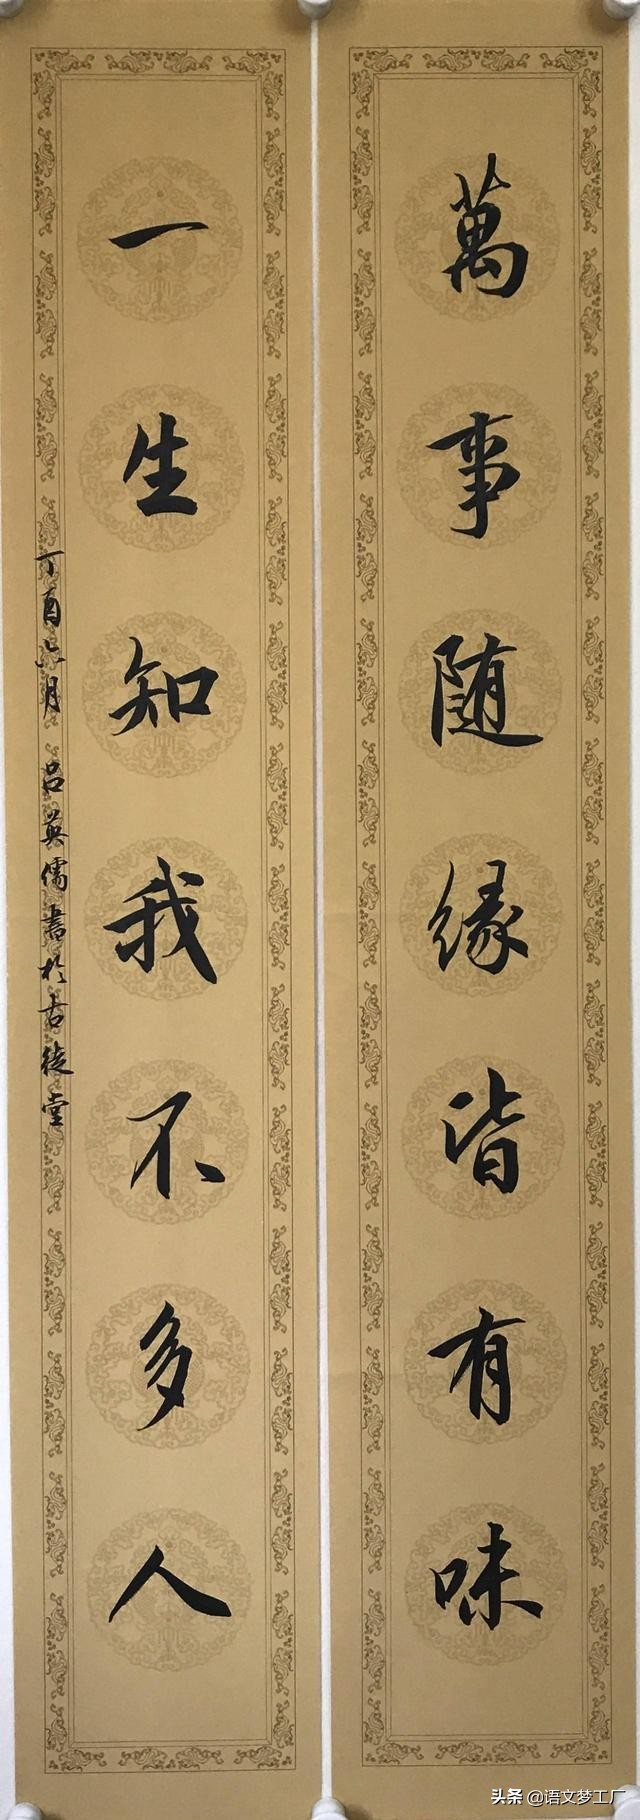 萬事随缘皆有味
一生知我不多人
丁酉六月 吕英儒書於古徒堂
头条@语文梦工厂